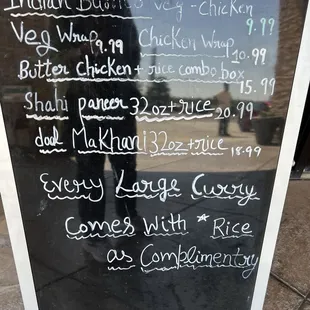 Indian Burrito Veg - Chicken
9.99
Veg Wrap 9.99 Chicken Wrap 10.99
Butter Chicken + rice combo box
15.99
Shahi paneer 32oz + rice 20.99
daal Makhani 32oz + rice 18.99
Every Large Curry
Comes With * Rice
as Complimentry